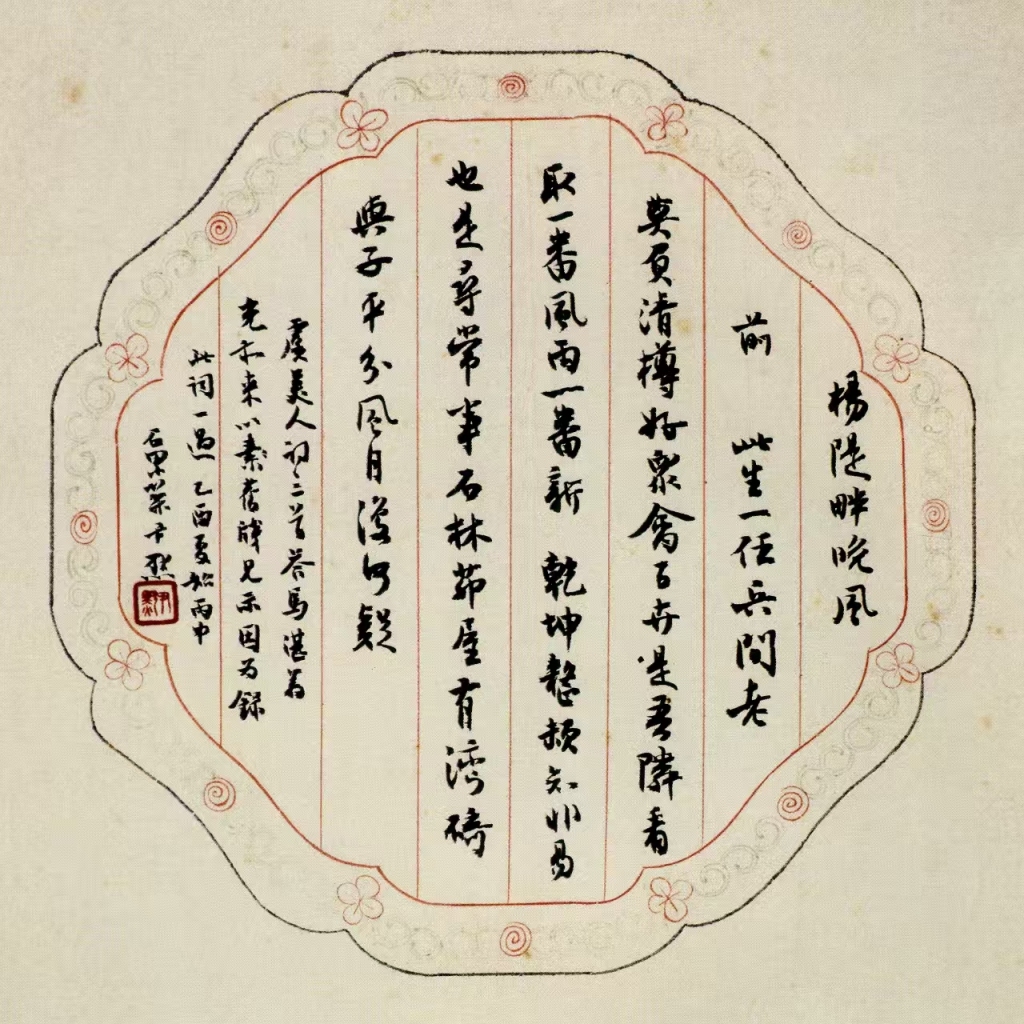 楊隄畔晚風
前 此生一任兵間老
莫負清樽好衆禽百卉是吾隣看
取一番風雨一番新 乾坤整頓知非易
也是尋常事石林茆屋有灣碕
與子平分風月復何疑
虞美人詞二首答馬湛翁
來以素舊牋見示因为錄
此詞一過 乙酉夏始雨中
石 尹默
尹默